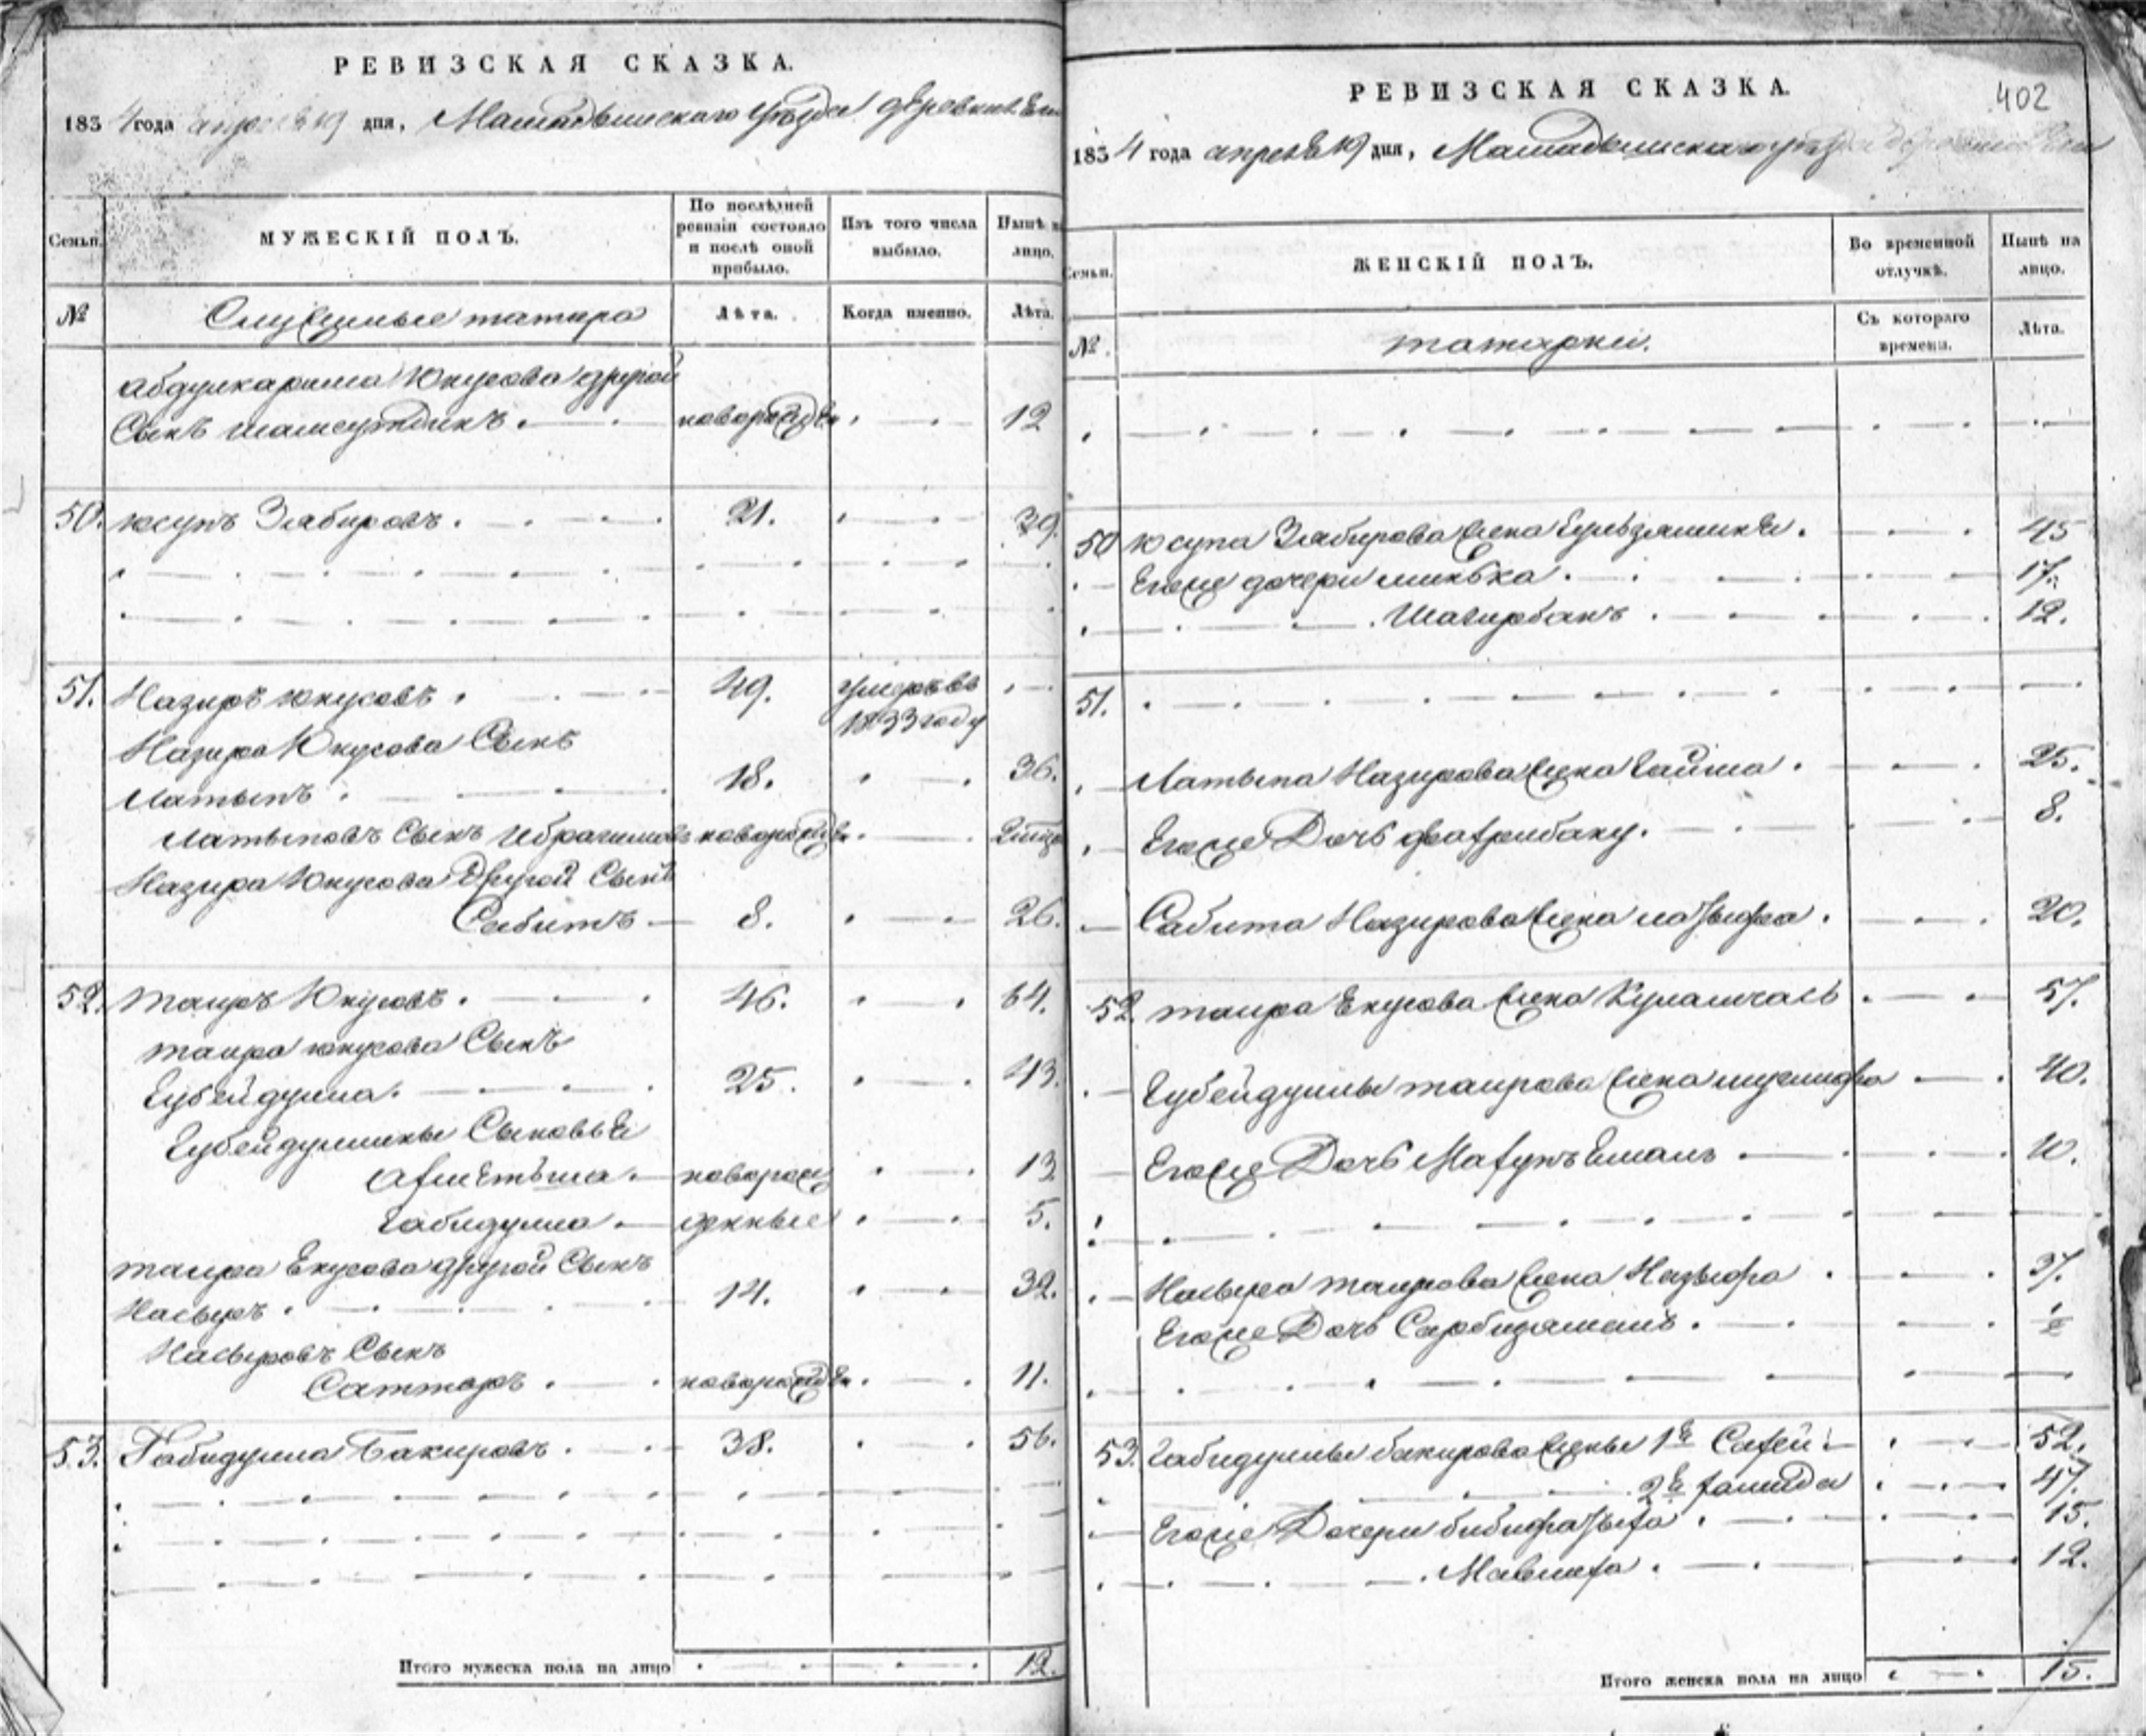 РЕВИЗСКАЯ СКАЗКА.
1834 года апреля 19 дня, Мамадышскаго уѣзда деревни
Семьи.
МУЖЕСКІЙ ПОЛЪ.
По послѣдней ревизіи состояло и послѣ оной прибыло.
Изъ того числа выбыло.
Нынѣ на лицо.
№
Служилые татара
Лѣта.
Когда именно.
Лѣта.
абдулкарима Юнусова другой
Сынъ шамсутдинъ. новорожден 12
50. юсупъ Забировъ. 21. 39.
51. Назиръ юнусовъ. 49. умеръ въ
1833 году
Назира Юнусова Сынъ
Латыпъ. 18. 36.
Латыповъ Сынъ Ибрагимъ новорожден
Назира Юнусова Другой Сынъ
Сабитъ 8. 26.
52. таиръ Юнусовъ. 46. 64.
таира юнусова Сынъ
Губейдулла. 25. 43.
Губейдуллины Сыновья
новорож 13
Габидулла. денные 5.
таира Енусова другой Сынъ
Насыръ. 14. 32.
Насыровъ Сынъ
Саттаръ. новорожден 11.
53. Габидулла Бакировъ. 38. 56.
Итого мужеска пола на лицо 12.
РЕВИЗСКАЯ СКАЗКА.
402
1834 года апреля 19 дня, Мамадышскаго уѣзда деревни
Семьи.
ЖЕНСКІЙ ПОЛЪ.
Во временной отлучкѣ.
Нынѣ на лицо.
№.
татарки.
Съ котораго времени.
Лѣта.
50 юсупа Забирова жена 45
Егоже дочери минька. 17.
Шагирбанъ. 12.
51.
Латыпа Назирова жена Гайша. 25.
Егоже Дочь 8.
Сабита Назирова жена 20.
52. таира Енусова жена 57.
Губейдуллы таирова жена 40.
Егоже Дочь 10.
Насыра таирова жена Назыфа. 37.
Егоже Дочь
53. Габидуллы бакирова жены 1я 52.
2я 47.
Егоже Дочери 15.
12.
Итого женска пола на лицо 15.